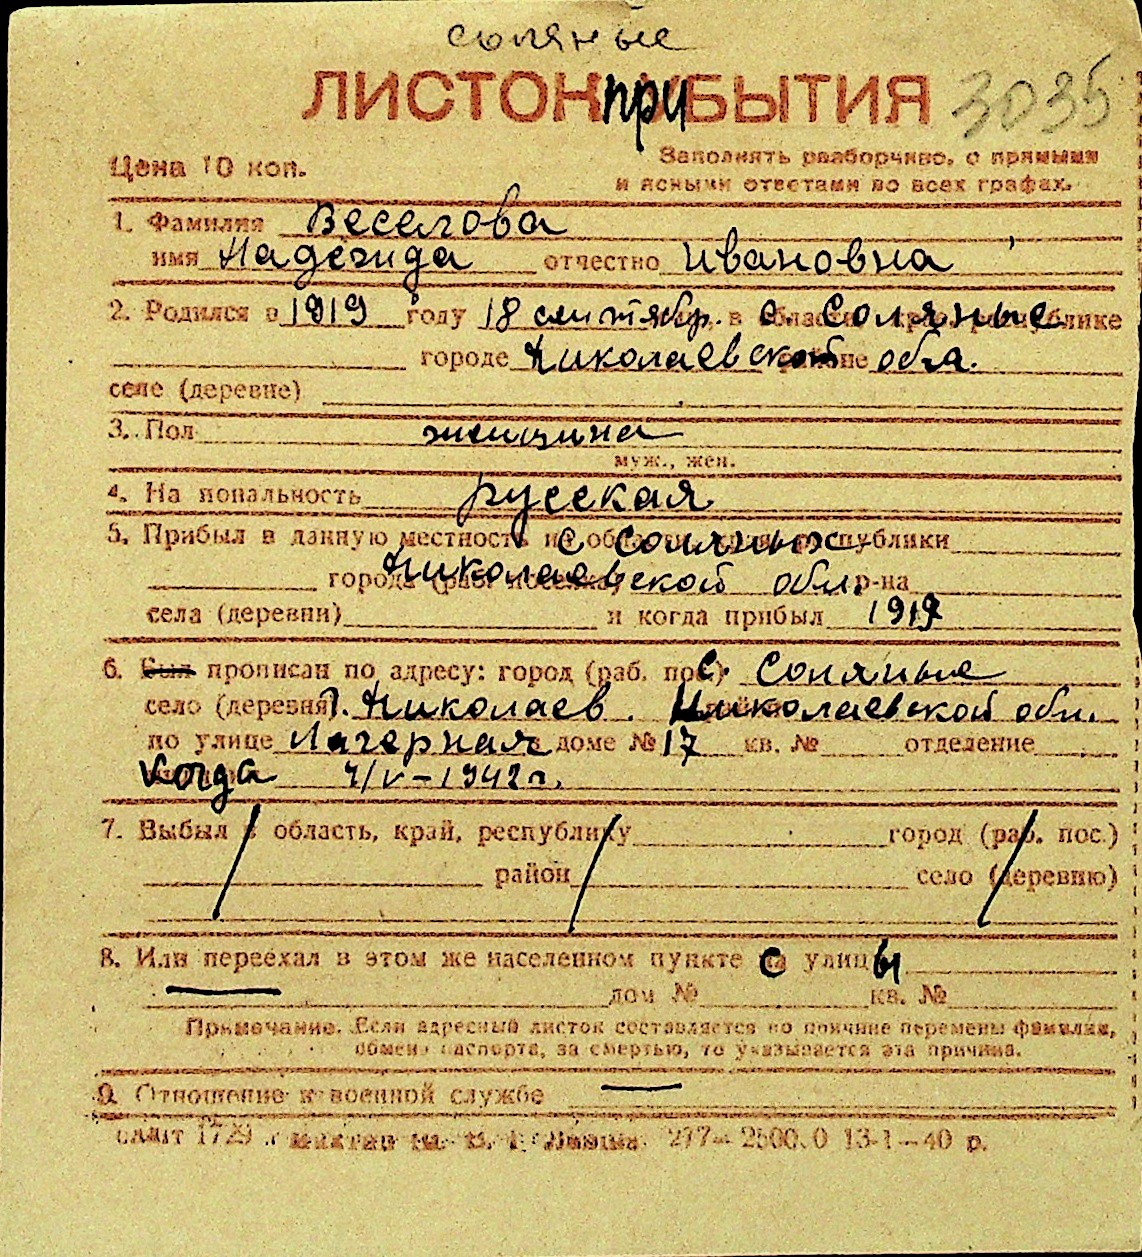 соляные
ЛИСТОК ПРИБЫТИЯ 3035
Цена 10 коп.
Заполнять разборчиво, с прямыми
и ясными ответами во всех графах.
1. Фамилия Веселова
имя Надежда отчество Ивановна
2. Родился в 1919 году 18 сентябр. в области с. Соляные республике
городе Николаевской районе обл.
селе (деревне)
3. Пол женщина
муж., жен.
4. Национальность русская
5. Прибыл в данную местность из области с Соляных республики
города (раб. поселка) Николаевской обл. р-на
села (деревни) и когда прибыл 1919
6. Был прописан по адресу: город (раб. пос.) с. Соляные
село (деревня) г. Николаев. Николаевской обл.
по улице Лагерная доме № 17 кв. № отделение
когда 4/V-1942 г.
7. Выбыл в область, край, республику город (раб. пос.)
район село (деревню)
8. Или переехал в этом же населенном пункте с улицы
дом № кв. №
Примечание. Если адресный листок составляется по причине перемены фамилии,
обмена паспорта, за смертью, то указывается эта причина.
9. Отношение к военной службе —
1729 277—2500.0 13-1—40 р.